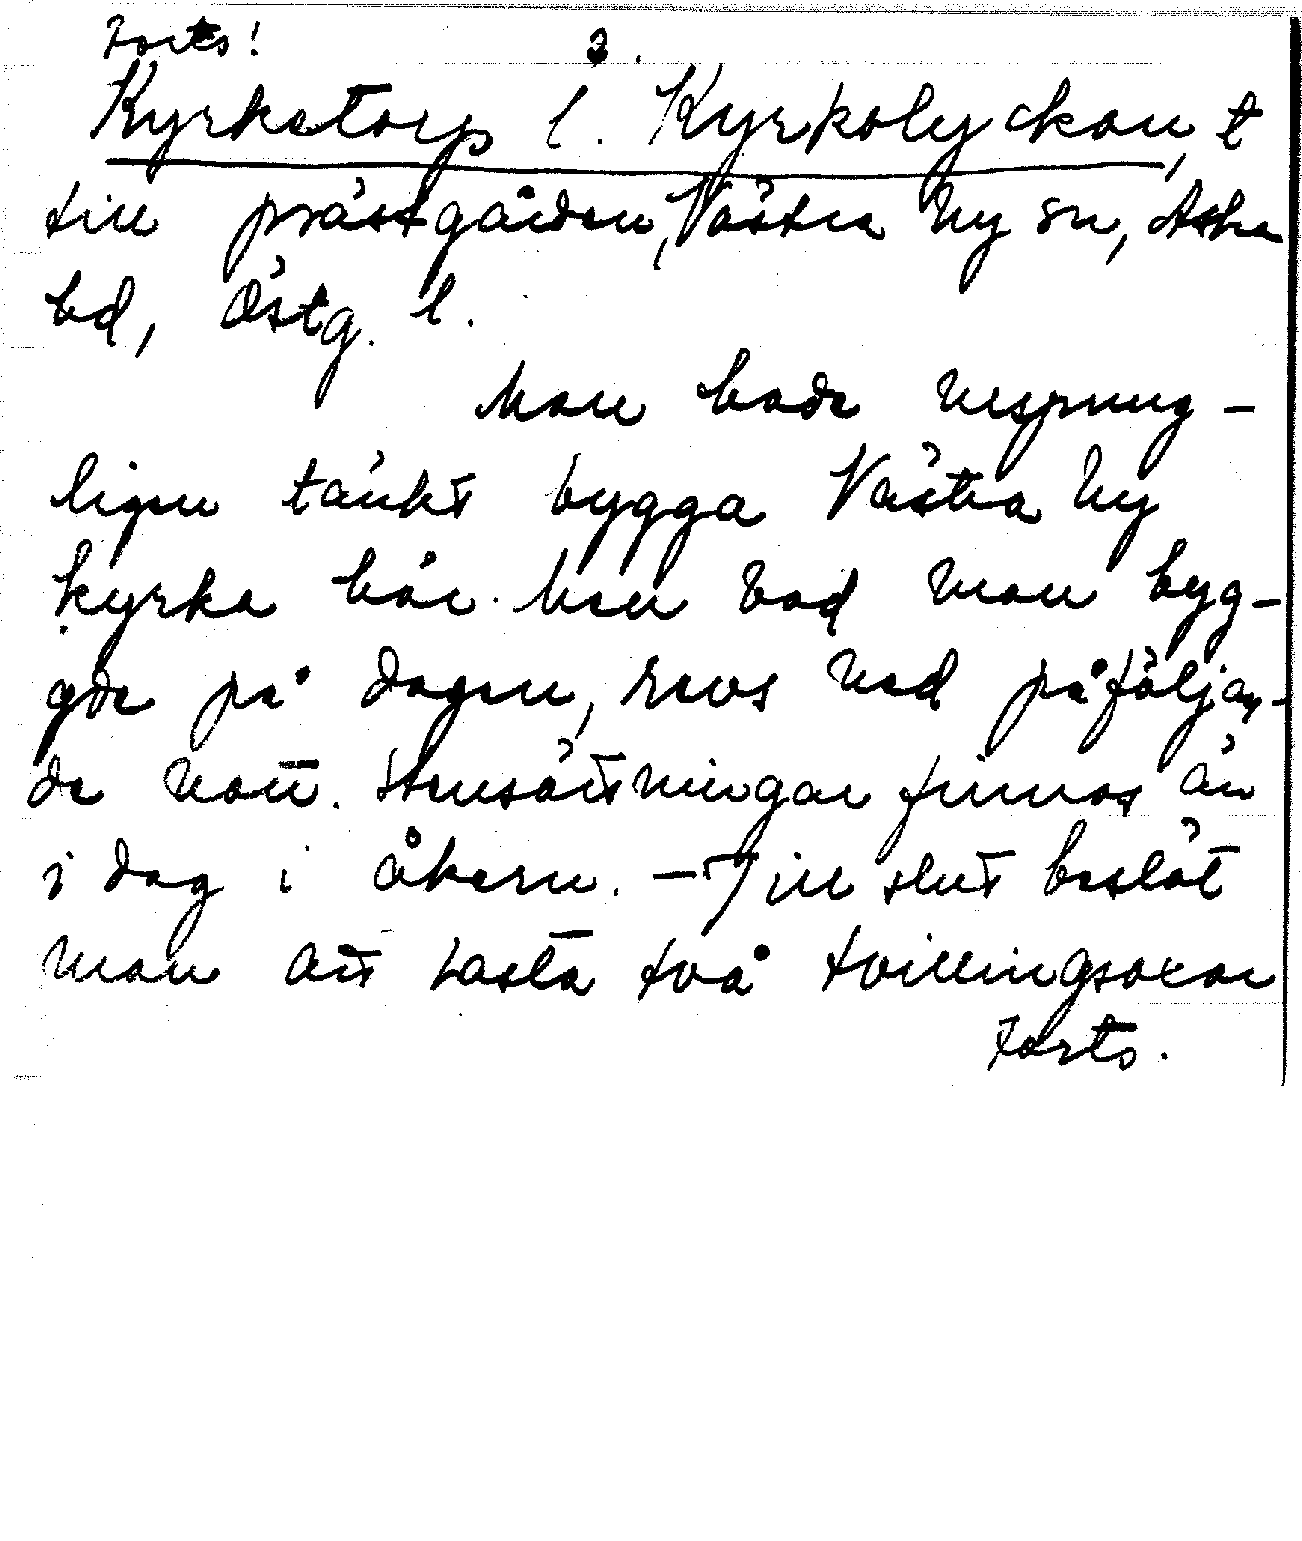 Forts! 2.
Kyrketorp l. Kyrkolyckan, t
till prästgården, Västra Ny sn, Aska
hd, Östg. l.
Man hade ursprung-
ligen tänkt bygga Västra Ny
kyrka här. Men vad man byg-
gde på dagen, revs ned påföljan-
de natt. Stensättningar finnas än
i dag i åkern. - Till slut beslöt
man att lasta två tvillingsoxar
Forts.